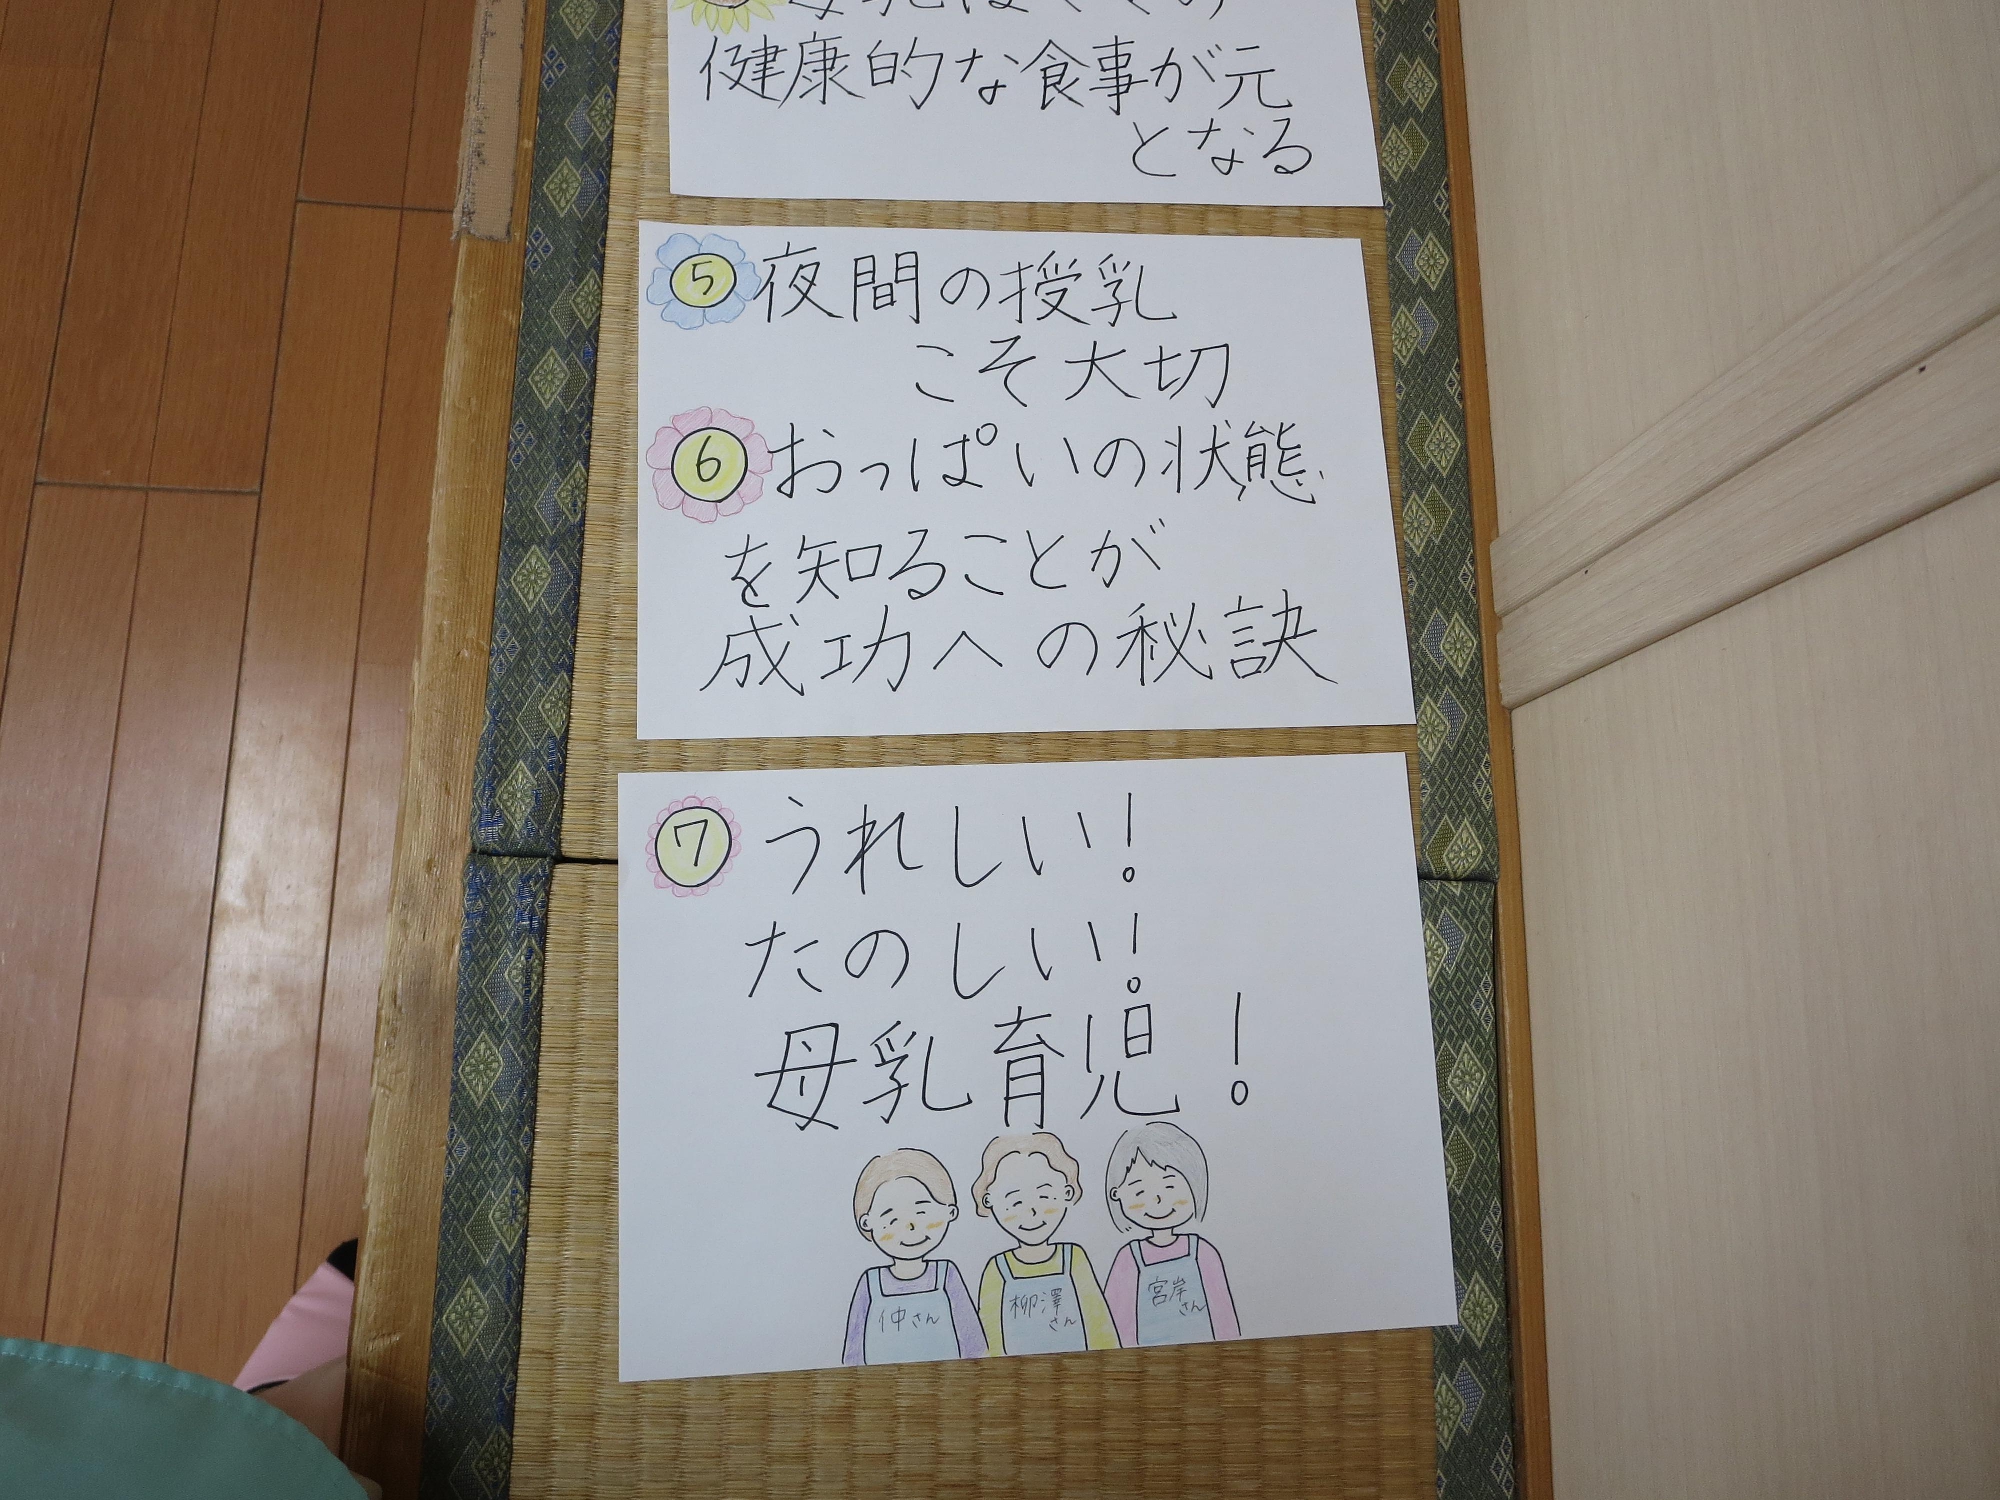 健康的な食事が元
となる
5 夜間の授乳
こそ大切
6 おっぱいの状態
を知ることが
成功への秘訣
7 うれしい!
たのしい!
母乳育児!
仲さん
柳澤
さん
宮岸
さん